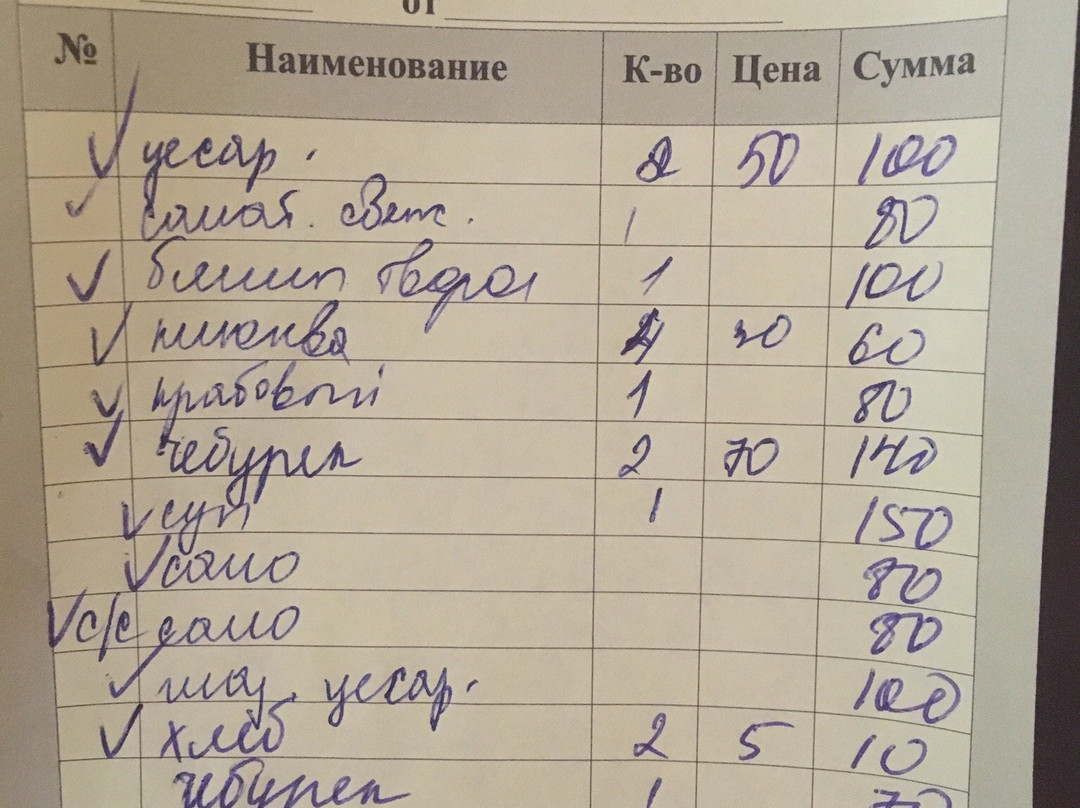 от
№ Наименование К-во Цена Сумма
цезар. 2 50 100
салат. свеж. 1 80
блины творог 1 100
клюква 30 60
крабовый 1 80
чебурек 2 70 140
суп 1 150
сало 80
с/с сало 80
цезар. 100
хлеб 2 5 10
чебурек 1 70